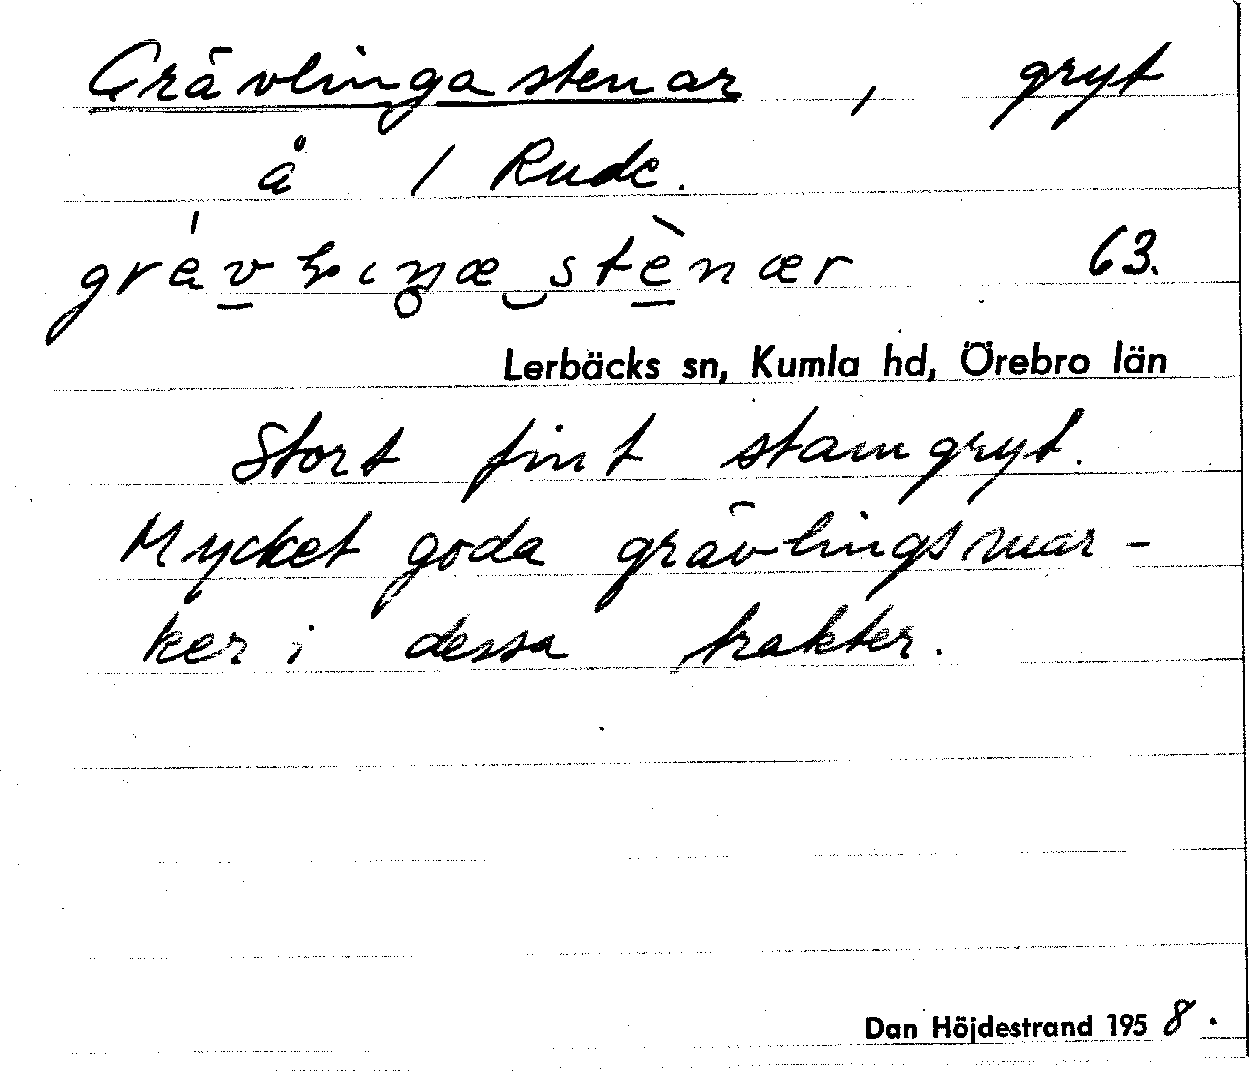 Grävlingastenar, gryt
å 1 Rude.
63.
Lerbäcks sn, Kumla hd, Örebro län
Stort fint stamgryt.
Mycket goda grävlingsmar-
ker i dessa trakter.
Dan Höjdestrand 1958.